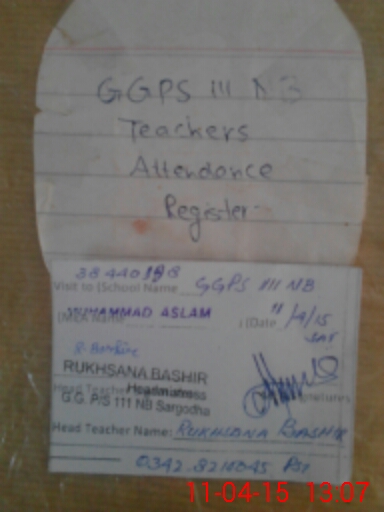 GGPS 111 NB
Teachers
Attendance
Register
38440198
Visit to (School Name GGPS 111 NB
MUHAMMAD ASLAM
(Date 11/4/15
SAT
R. Bashir
RUKHSANA.BASHIR
Headmistress
G.G. P/S 111 NB Sargodha
Head Teacher Name: RUKHSANA BASHIR
PST
11-04-15 13:07